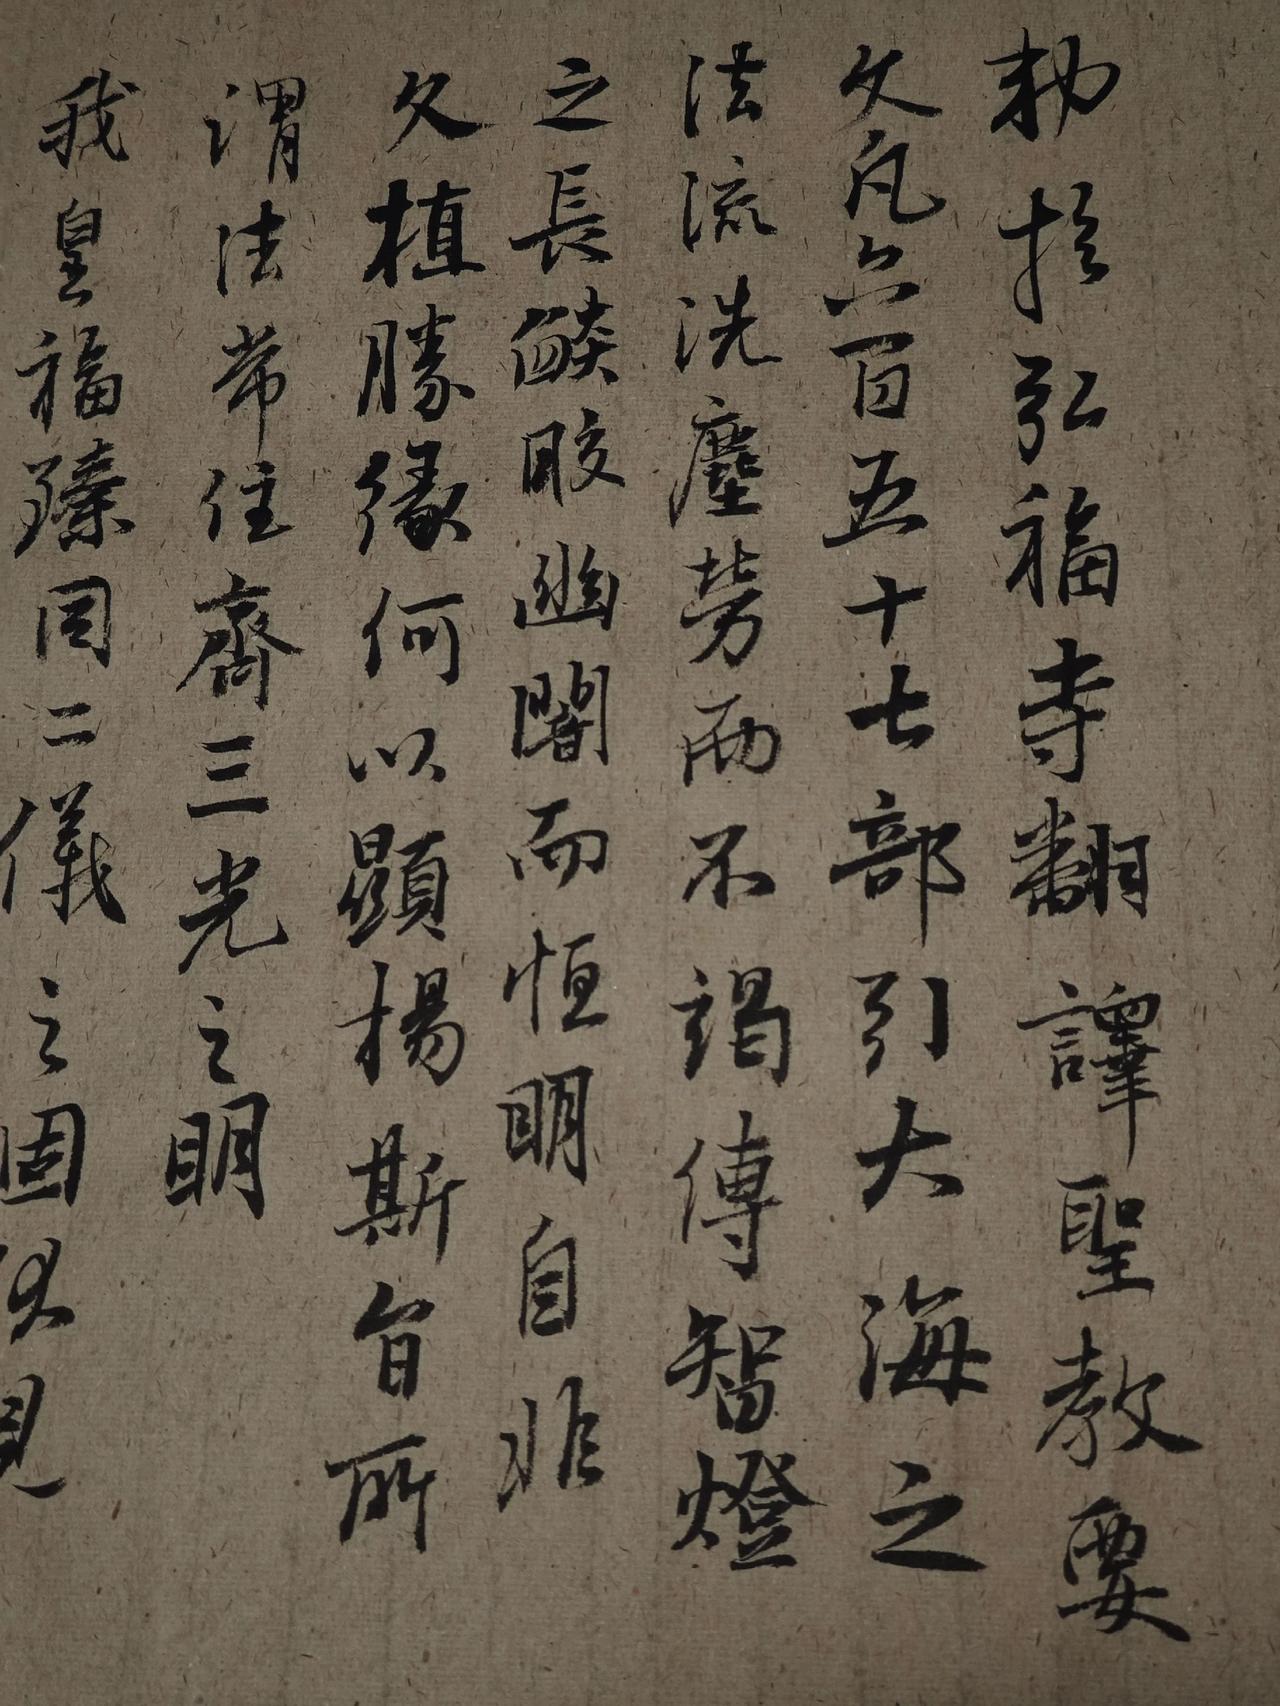 勅於弘福寺翻譯聖教要
文凡六百五十七部引大海之
法流洗塵勞而不竭傳智燈
之長燄皎幽闇而恒明自非
久植勝緣何以顯揚斯旨所
謂法常住齊三光之明
我皇福臻同二儀之固伏見